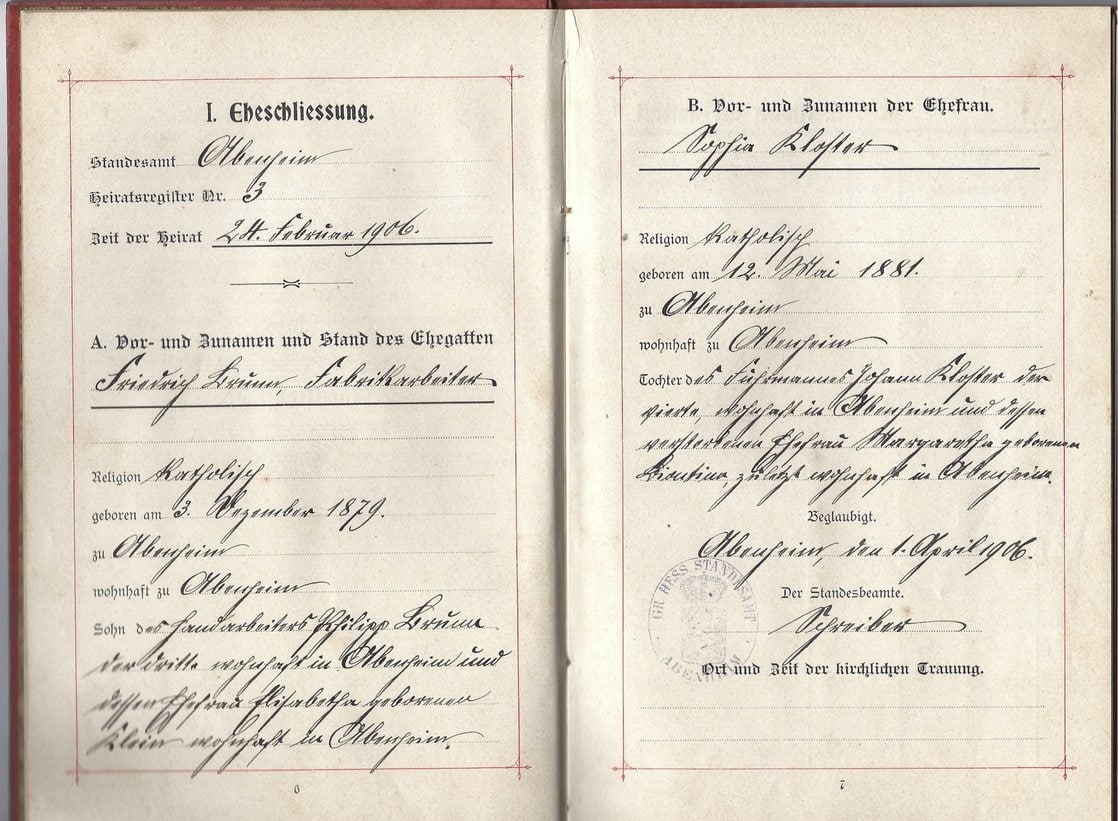 I. Eheschliessung.
Standesamt Abenheim
Heiratsregister Nr. 3
Zeit der Heirat 24. Februar 1906.
A. Vor- und Zunamen und Stand des Ehegatten
Friedrich Brunn, Fabrikarbeiter
Religion Katholisch
geboren am 3. Dezember 1879.
zu Abenheim
wohnhaft zu Abenheim
Sohn des Handarbeiters Philipp Brunn
der dritte wohnhaft in Abenheim und
dessen Ehefrau Elisabetha geborenen
Klein wohnhaft in Abenheim.
6
B. Vor- und Zunamen der Ehefrau.
Sophia Kloster
Religion Katholisch
geboren am 12. Mai 1881.
zu Abenheim
wohnhaft zu Abenheim
Tochter des Fuhrmannes Johann Kloster der
vierte, wohnhaft in Abenheim und dessen
verstorbenen Ehefrau Margaretha geborenen
zuletzt wohnhaft in Abenheim.
Beglaubigt.
Abenheim, den 1. April 1906.
GR HESS STANDESAMT
ABENHEIM
Der Standesbeamte.
Schreiber
Ort und Zeit der kirchlichen Trauung.
7